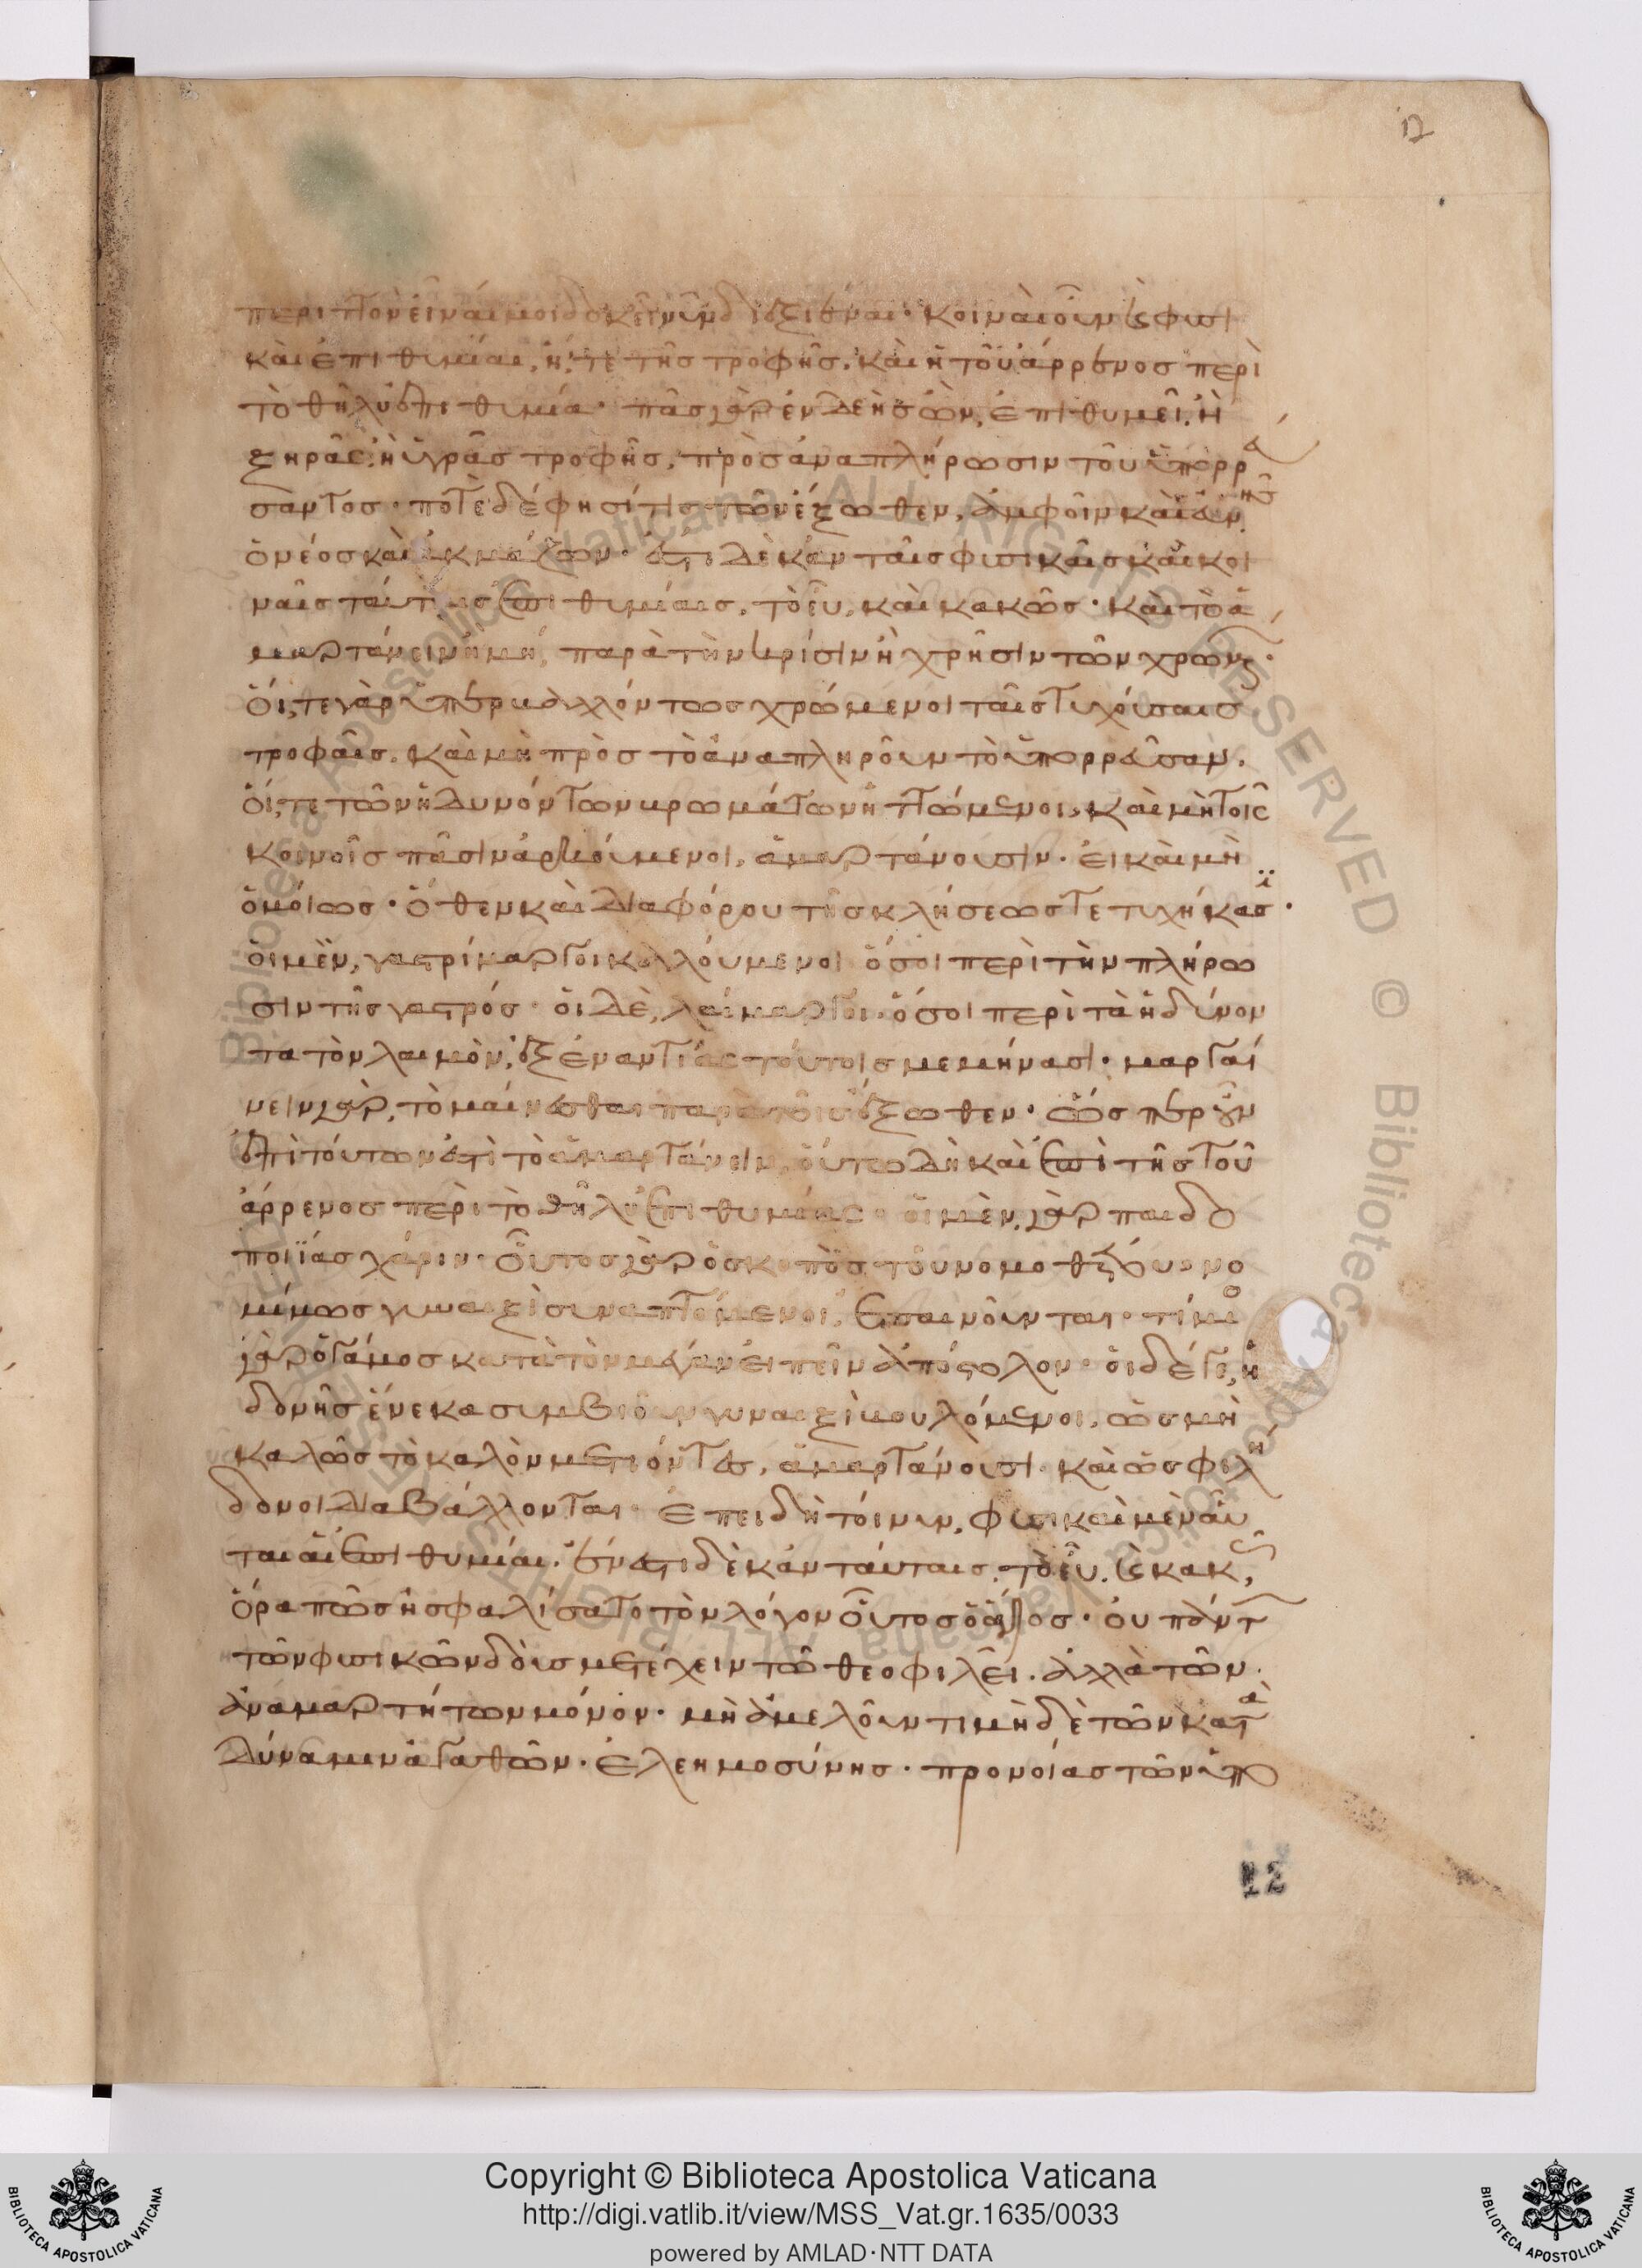 12
περιττὸν εἶναί μοι δοκεῖ νῦν διεξιέναι· κοιναὶ οὖν καὶ φυσι
καὶ ἐπιθυμίαι, ἥ, τε τῆς τροφῆς, καὶ ἡ τοῦ ἄρρενος περὶ
τὸ θῆλυ ἐπιθυμία· πᾶς γὰρ ἐνδεὴς ὢν, ἐπιθυμεῖ, ἢ
ξηρᾶς, ἢ ὑγρᾶς τροφῆς, πρὸς ἀναπλήρωσιν τοῦ ὑπορρεύ
σαντος· ποτὲ δέ φησί τις τῶν ἔξωθεν, ἀμφοῖν καὶ εὐνῆς
ὁ νέος καὶ ἀκμάζων· ἔστι δὲ κἀν ταῖς φυσικαῖς καὶ κοι
ναῖς ταύταις ἐπιθυμίαις, τὸ εὖ, καὶ κακῶς· καὶ τὸ ἁ
μαρτάνειν ἢ μή, παρὰ τὴν κρίσιν ἢ χρῆσιν τῶν χρωμένων·
οἵ, τε γὰρ ὑπερβαλλόντως χρώμενοι ταῖς τυχούσαις
τροφαῖς, καὶ μὴ πρὸς τὸ ἀναπληροῦν τὸ ὑπορρεῦσαν,
οἵ, τε τῶν ἡδυνόντων βρωμάτων ἡττώμενοι, καὶ μὴ τοῖς
κοινοῖς πᾶσιν ἀρκούμενοι, ἁμαρτάνουσιν· εἰ καὶ μὴ
ὁμοίως· ὅθεν καὶ διαφόρου τῆς κλήσεως τετυχήκασι·
οἱ μὲν, γαστρίμαργοι καλούμενοι ὅσοι περὶ τὴν πλήρω
σιν τῆς γαστρός· οἱ δὲ, λαίμαργοι, ὅσοι περὶ τὰ ἡδύνον
τα τὸν λαιμὸν, ἐξεναντίας τούτοις μεμήνασι· μαργαί
νειν γὰρ, τὸ μαίνεσθαι παρὰ τοῖς ἔξωθεν· ὥσπερ οὖν
ἐπὶ τούτων ἐστὶ τὸ ἁμαρτάνειν, οὕτω δὴ καὶ ἐπὶ τῆς τοῦ
ἄρρενος περὶ τὸ θῆλυ ἐπιθυμίας· οἱ μὲν, γὰρ παιδο
ποιΐας χάριν· οὗτος γὰρ ὁ σκοπὸς τοῦ νομοθέτου, νο
μίμως γυναιξὶ συναπτόμενοι, ἐπαινοῦνται· τίμιος
γὰρ ὁ γάμος κατὰ τὸν μέγαν εἰπεῖν ἀπόστολον· οἱ δέ γε, ἡ
δονῆς ἕνεκα συμβιοῦν γυναιξὶ βουλόμενοι, ὡς μὴ
καλῶς τὸ καλὸν μετιόντες, ἁμαρτάνουσι· καὶ ὡς φιλή
δονοι διαβάλλονται· ἐπειδὴ τοίνυν, φυσικαὶ μὲν αὗ
ται αἱ ἐπιθυμίαι, ἔνεστι δὲ κἀν ταύταις, τὸ εὖ, καὶ κακῶς,
ὅρα πῶς ἠσφαλίσατο τὸν λόγον οὗτος ὁ ἅγιος· οὐ πάντων
τῶν φυσικῶν δοὺς μετέχειν τῶ θεοφιλεῖ, ἀλλὰ τῶν
ἀναμαρτήτων μόνον· μὴ ἀμελοῦντι μὴ δὲ τῶν κατὰ
δύναμιν ἀγαθῶν· ἐλεημοσύνης· προνοίας τῶν ὑπὸ
12
Copyright © Biblioteca Apostolica Vaticana
http://digi.vatlib.it/view/MSS_Vat.gr.1635/0033
powered by AMLAD·NTT DATA